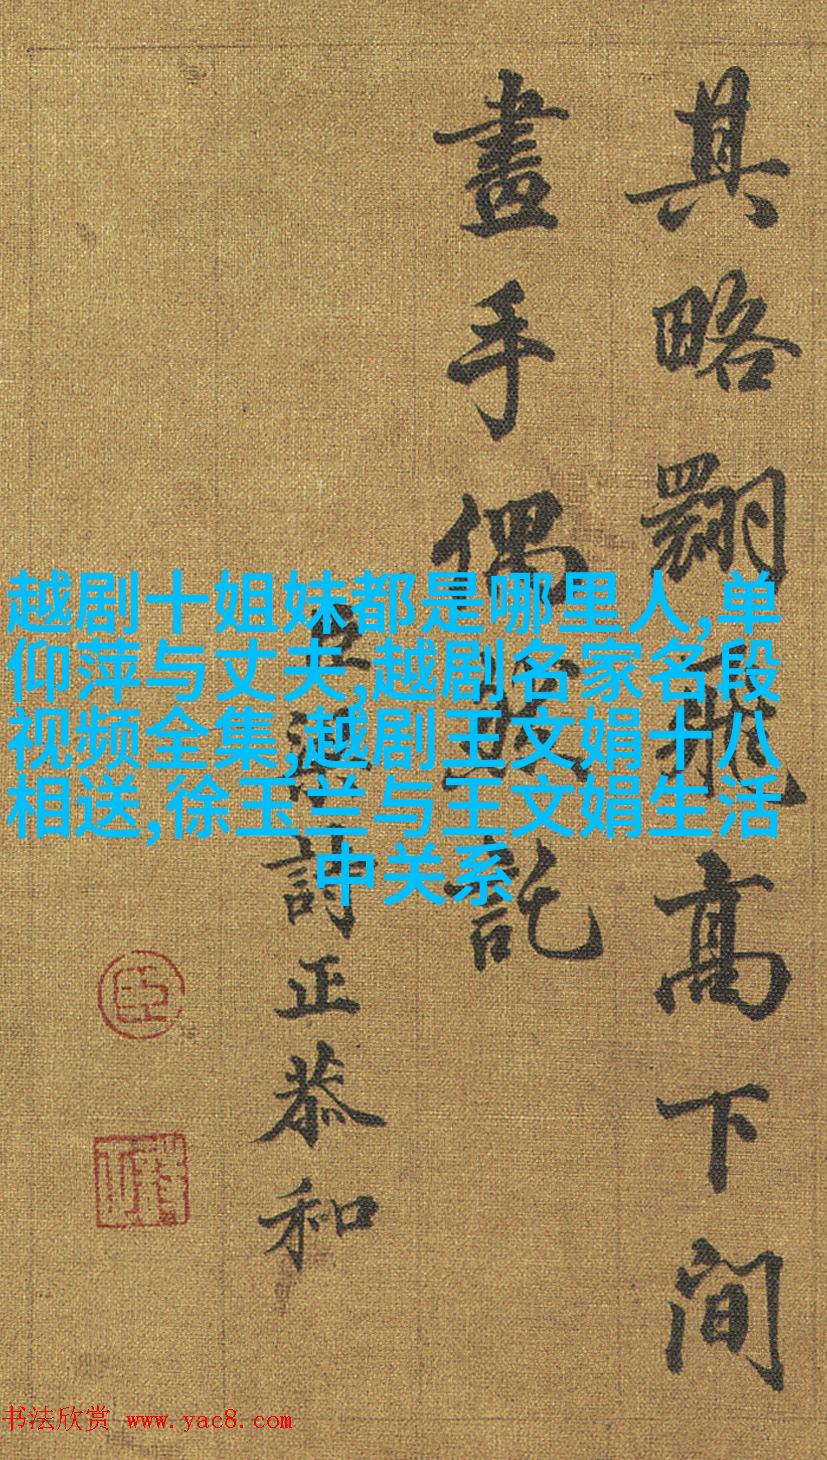 其略翾飛高下間
畫手偶然託
臣梁詩正恭和
臣
越剧十姐妹都是哪里人,单
仰萍与丈夫,越剧名家名段
视频全集,越剧王文娟十八
相送,徐玉兰与王文娟生活
中关系
书法欣赏 www.yac8.com